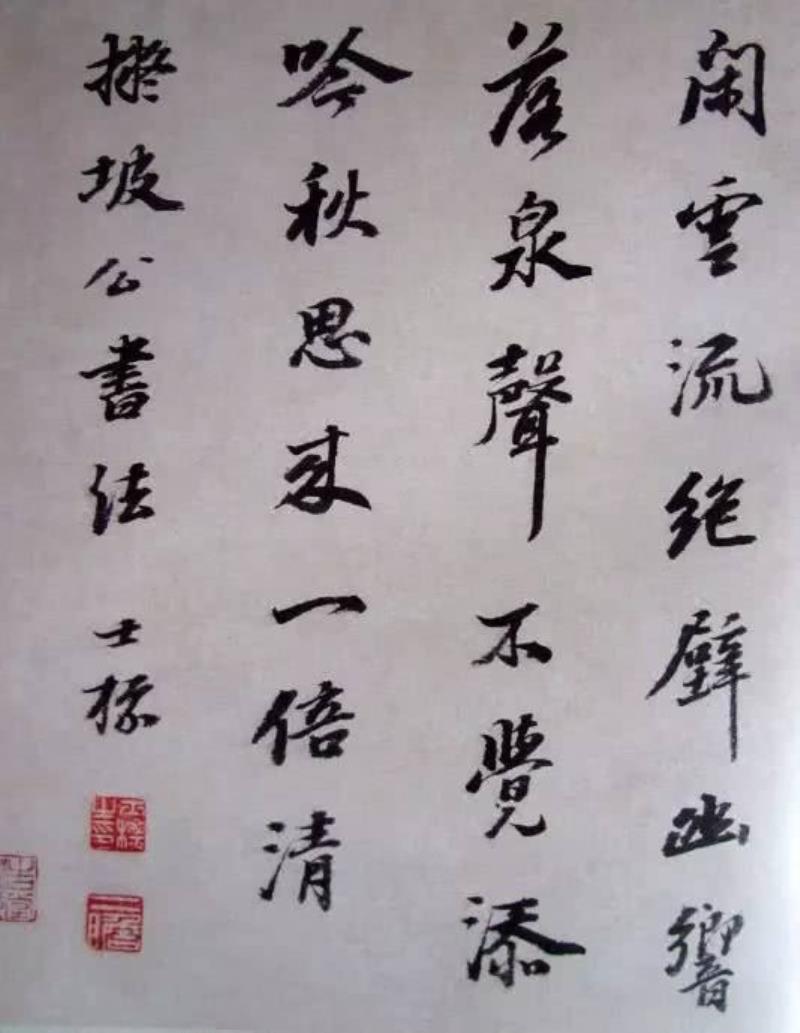 閑雲流絶壁幽響
落泉聲不覺添
吟秋思来一倍清
擬坡公書法 士標